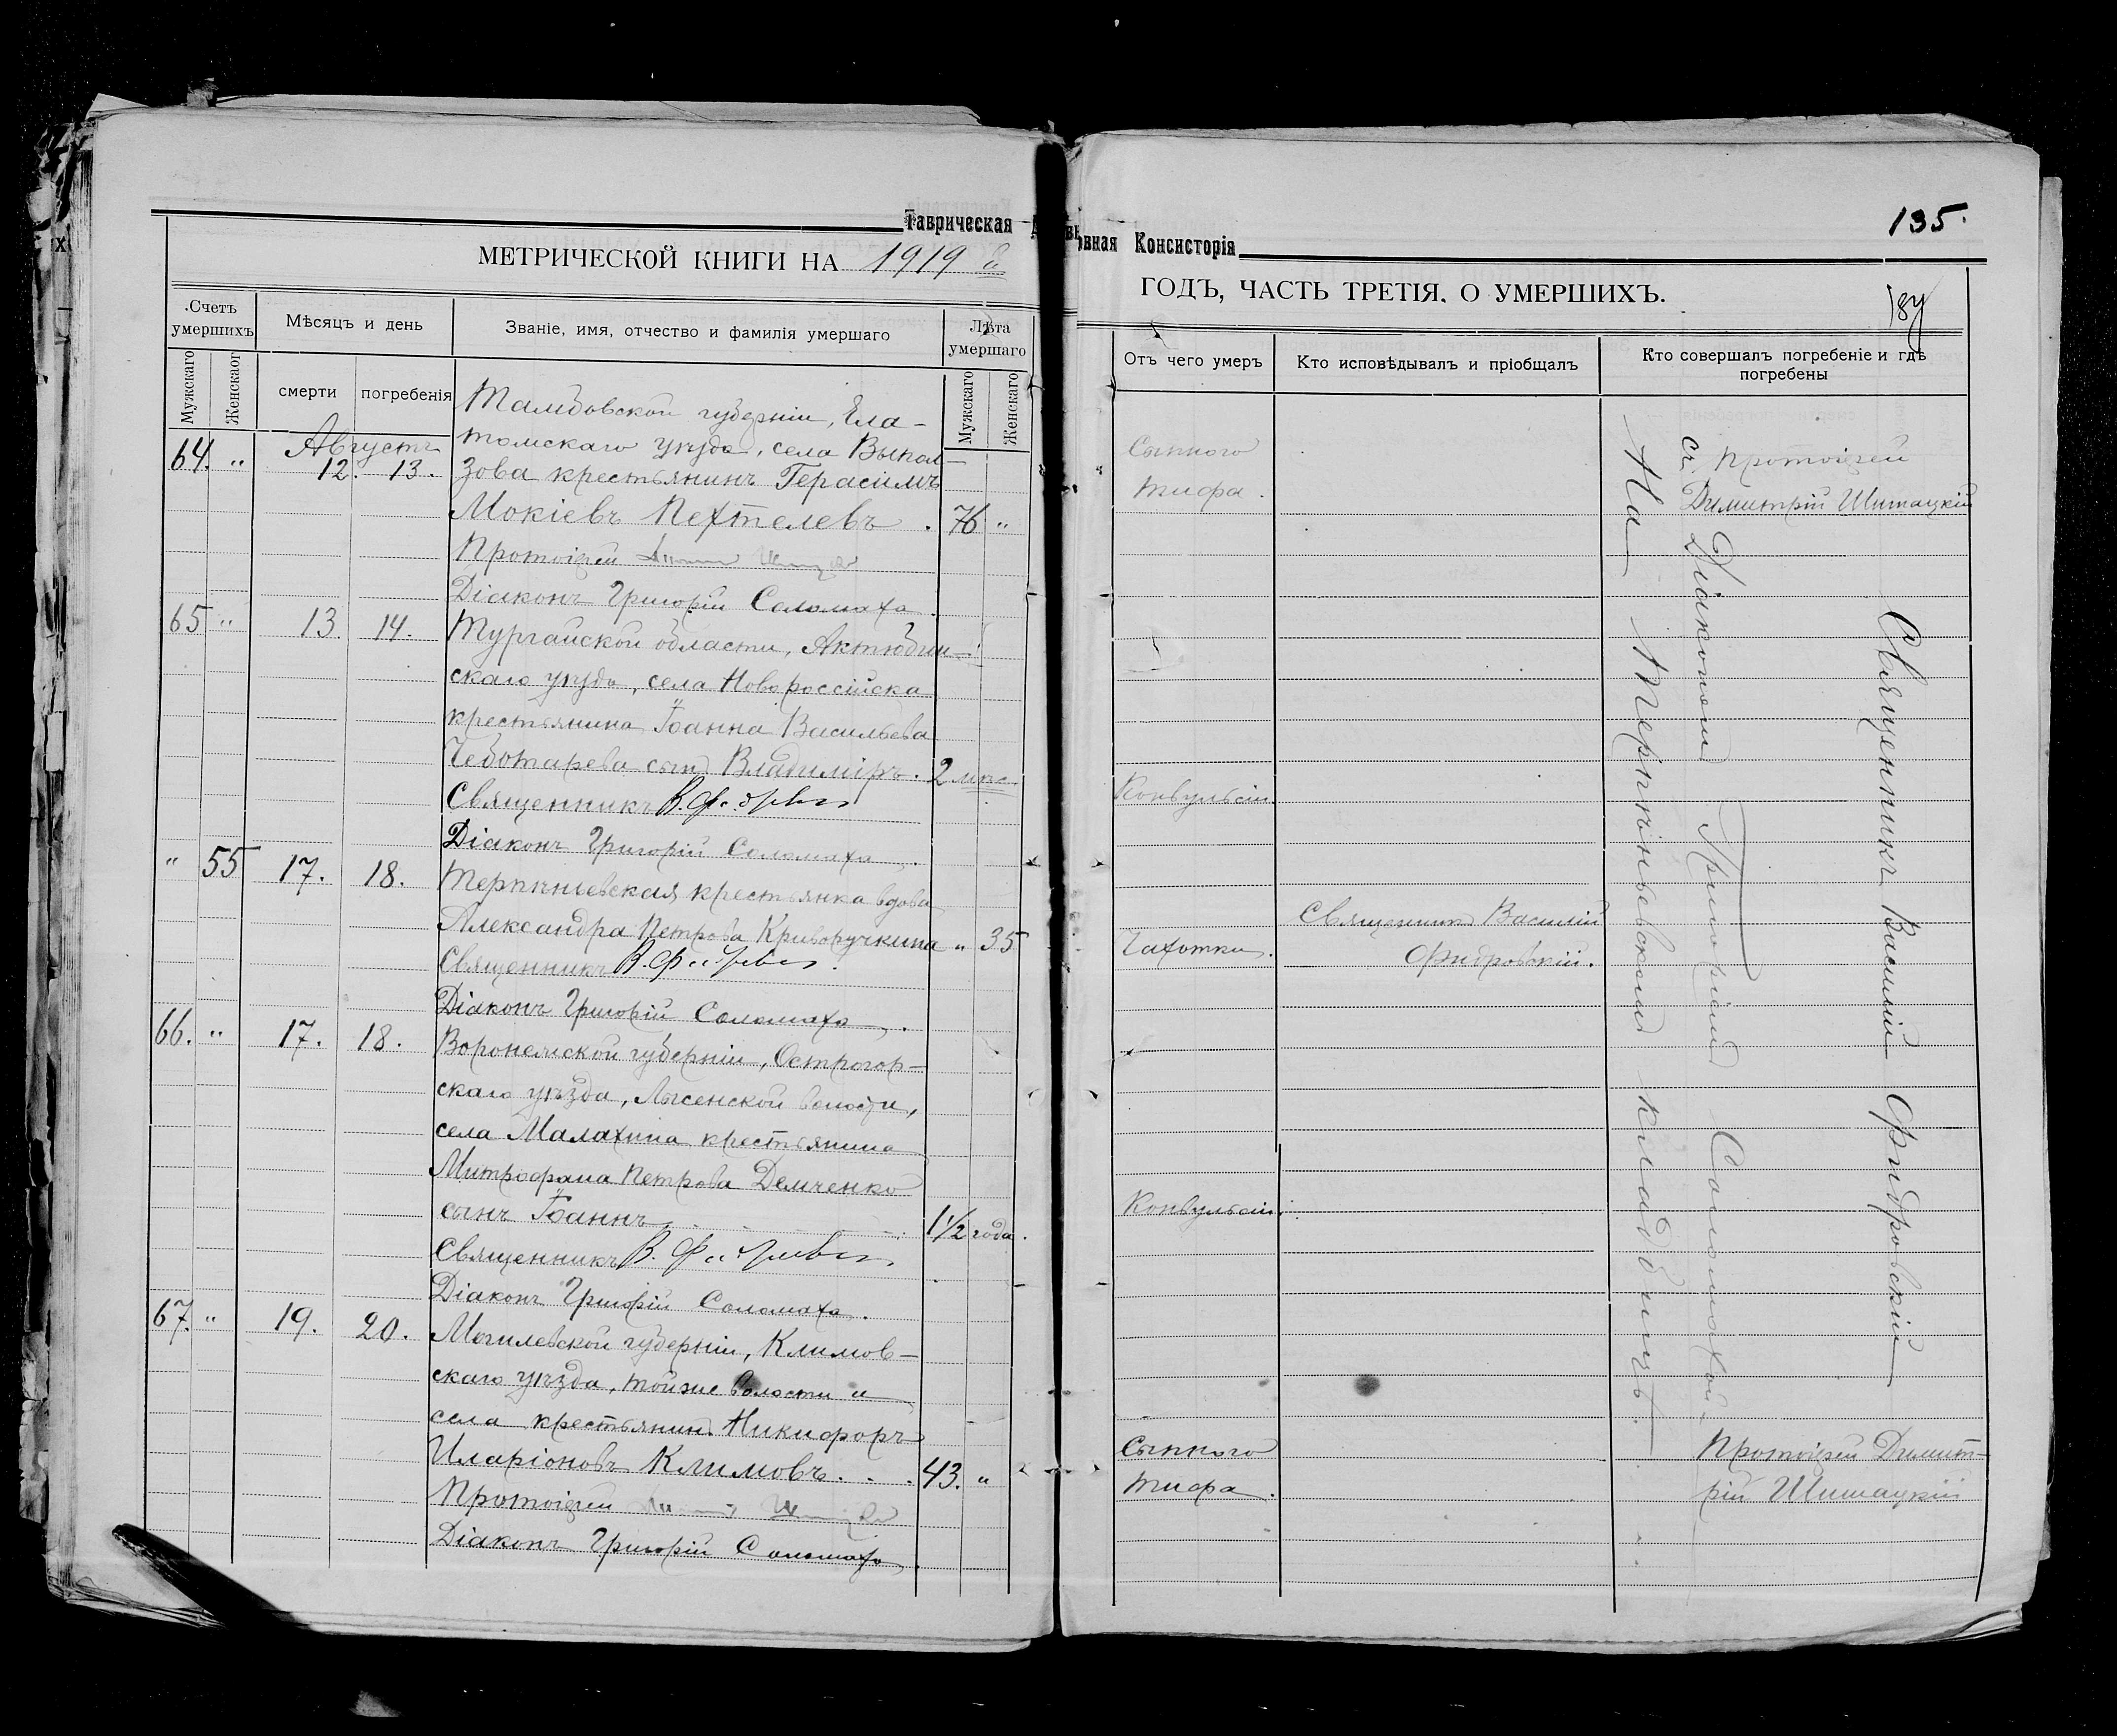 Таврическая
МЕТРИЧЕСКОЙ КНИГИ НА 1919 й
Счетъ умершихъ
Мѣсяцъ и день
Званіе, имя, отчество и фамилія умершаго
Лѣта умершаго
Мужскаго
Женскаго
смерти
погребенія
Мужскаго
Женскаго
Августъ
64. " 12. 13.
Тамбовской губерніи, Ела-
томскаго уѣзда, села Выпол-
зова крестьянинъ Герасимъ
Мокіевъ Пехтелевъ . 76 "
Протоіерей
Діаконъ Григорій Соломаха.
65 " 13. 14. Тургайской области, Актюбин-
скаго уѣзда, села Новороссійска
крестьянина Іоанна Васильева
Чеботарева сынъ Владиміръ. 2 мѣс.
Священникъ В.
Діаконъ Григорій Соломаха.
" 55 17. 18. Терпѣніевская крестьянка вдова
Александра Петрова Криворучкина " 35
Священникъ В.
Діаконъ Григорій Соломаха.
66. " 17. 18. Воронежской губерніи, Острогор-
скаго уѣзда, волости,
села Малахина крестьянина
Митрофана Петрова Демченко
сынъ Іоаннъ 1 1/2 года.
Священникъ В.
Діаконъ Григорій Соломаха.
67. " 19. 20. Могилевской губерніи, Климов-
скаго уѣзда, тойже волости и
села крестьянинъ Никифоръ
Иларіоновъ Климовъ. . . 43. "
Протоіерей
Діаконъ Григорій Соломаха.
овная Консисторія
135.
ГОДЪ, ЧАСТЬ ТРЕТІЯ, О УМЕРШИХЪ.
Отъ чего умеръ
Кто исповѣдывалъ и пріобщалъ
Кто совершалъ погребеніе и гдѣ погребены
Сыпного
тифа.
Протоіерей
Димитрій Шишацкій
съ Діакономъ Григоріемъ Соломахой.
На Терпѣньевскомъ кладбищѣ.
Священникъ Василій
Конвульсіи
Чахотки.
Священникъ Василій
Конвульсіи.
Сыпного
тифа.
Протоіерей Димит-
рій Шишацкій